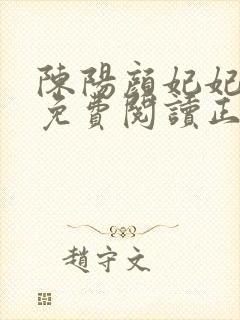 陳陽顏妃妃
免費閱讀正
趙守文